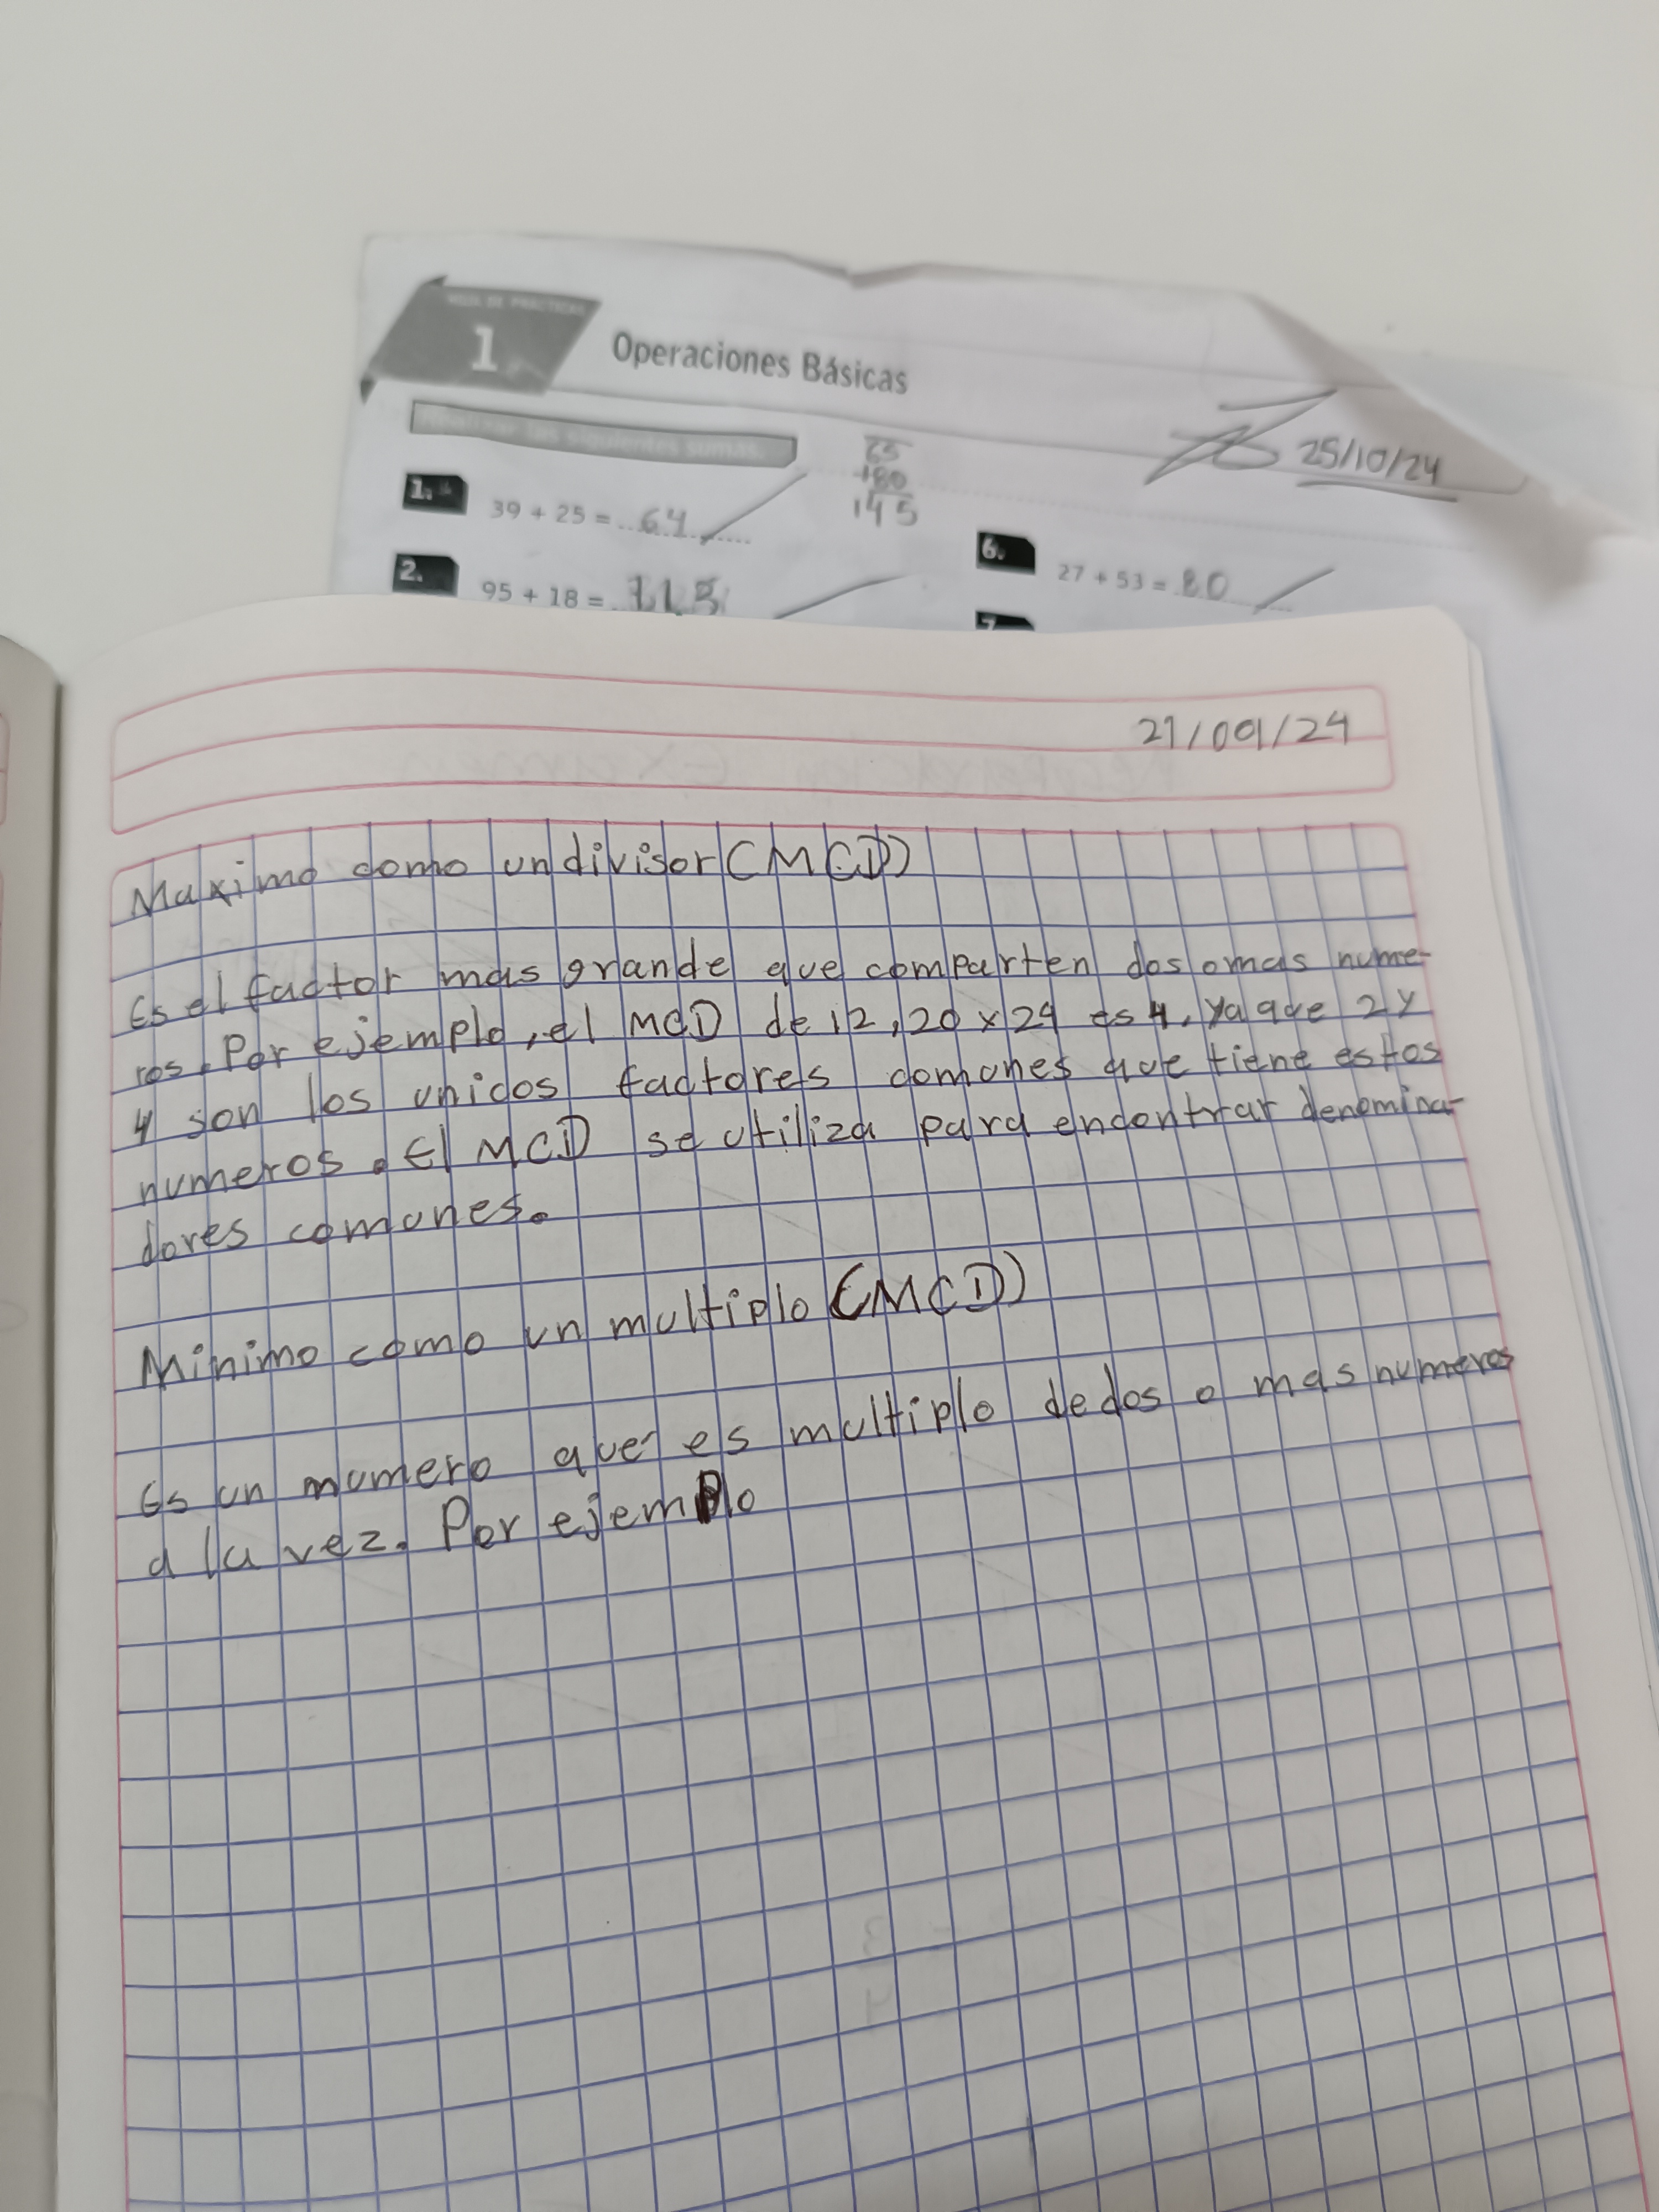 HOJA DE PRÁCTICAS
1
Operaciones Básicas
siguientes sumas.
25/10/24
65
+80
145
1.
39 + 25 = 64
2.
95 + 18 = 113
6.
27 + 53 = 80
7.
21/09/24
Maximo como un divisor (MCD)
Es el factor mas grande que comparten dos o mas nume-
ros. Por ejemplo, el MCD de 12, 20 y 24 es 4, ya que 2 y
4 son los unicos factores comones que tiene estos
numeros. El MCD se utiliza para encontrar denomina-
dores comunes.
Minimo como un multiplo (MCD)
Es un mumero que es multiplo de dos o mas numeros
a la vez. Por ejemplo